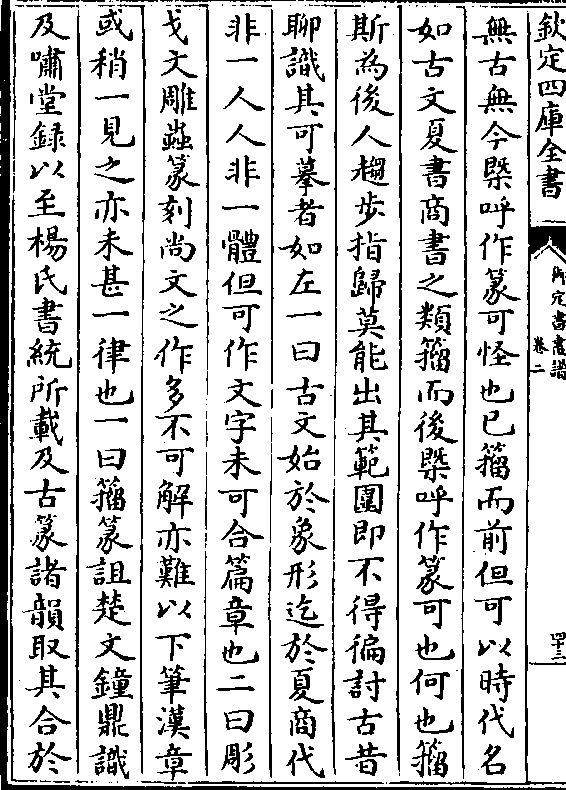 欽定四庫全書
御定書畫譜
卷二
四十三
無古無今槩呼作篆可怪也已籀而前但可以時代名
如古文夏書商書之類籀而後槩呼作篆可也何也籀
斯為後人趨步指歸莫能出其範圍即不得徧討古昔
聊識其可摹者如左一曰古文始於象形迄於夏商代
非一人人非一體但可作文字未可合篇章也二曰彫
戈文雕蟲篆刻尚文之作多不可解亦難以下筆漢章
或稍一見之亦未甚一律也一曰籀篆詛楚文鐘鼎識
及嘯堂録以至楊氏書統所載及古篆諸韻取其合於